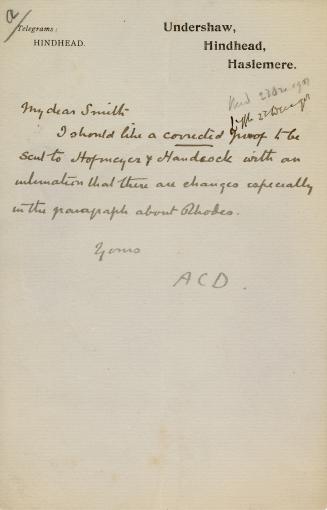 a/
Telegrams:
HINDHEAD.
Undershaw,
Hindhead,
Haslemere.
My dear Smith
I should like a corrected proof to be
sent to Hofmeyer & Handcock with an
intimation that there are changes especially
in the paragraph about Rhodes.
Yours
ACD.